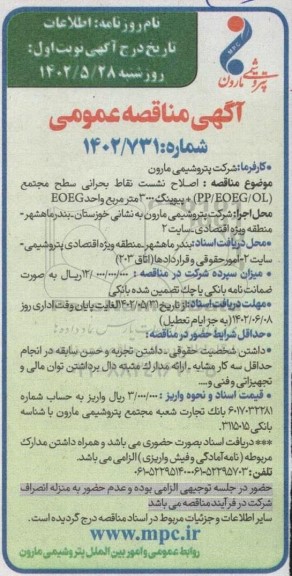 نام روزنامه: اطلاعات
تاریخ درج آگهی نوبت اول:
روز شنبه ۱۴۰۲/۵/۲۸
MPC
پتروشیمی مارون
آگهی مناقصه عمومی
شماره: ۱۴۰۲/۷۳۱
●کارفرما: شرکت پتروشیمی مارون
موضوع مناقصه : اصلاح نشست نقاط بحرانی سطح مجتمع
(PP/EOEG/OL) + پیوینگ ۳۰۰۰ متر مربع واحد EOEG
محل اجرا: شرکت پتروشیمی مارون به نشانی خوزستان ـ بندر ماهشهر ـ
منطقه ویژه اقتصادی ـ سایت ۲
●محل دریافت اسناد: بندر ماهشهر ـ منطقه ویژه اقتصادی پتروشیمی ـ
سایت ۲ ـ امور حقوقی و قراردادها (اتاق ۲۰۳)
● میزان سپرده شرکت در مناقصه : ۱۲/۰۰۰/۰۰۰/۰۰۰ ریال به صورت
ضمانت نامه بانکی یا چک تضمین شده بانکی
●مهلت دریافت اسناد: از تاریخ ۱۴۰۲/۵/۳۱ لغایت پایان وقت اداری روز
۱۴۰۲/۰۶/۰۸ (به جز ایام تعطیل)
●حداقل شرایط حضور در مناقصه:
●داشتن شخصیت حقوقی ـ داشتن تجربه و حسن سابقه در انجام
حداقل سه کار مشابه ـ ارائه مدارک مثبته دال بر داشتن توان مالی و
تجهیزاتی و فنی و....
● قیمت اسناد و نحوه واریز : ۳/۰۰۰/۰۰۰ ریال واریز به حساب شماره
۶۰۱۷۰۳۲۲۸۱ بانک تجارت شعبه مجتمع پتروشیمی مارون با شناسه
بانکی ۳۱۱۵۰۱۵
***دریافت اسناد بصورت حضوری می باشد و همراه داشتن مدارک
مربوطه (نامه آمادگی و فیش واریزی) الزامی می باشد.
تلفن: ۰۶۱-۵۲۲۹۵۷۰۳ - ۰۶۱-۵۲۲۹۵۱۴۰
حضور در جلسه توجیهی الزامی بوده و عدم حضور به منزله انصراف
شرکت در فرآیند مناقصه می باشد
سایر اطلاعات و جزئیات مربوط در اسناد مناقصه درج گردیده است.
www.mpc.ir
روابط عمومی و امور بین الملل پتروشیمی مارون